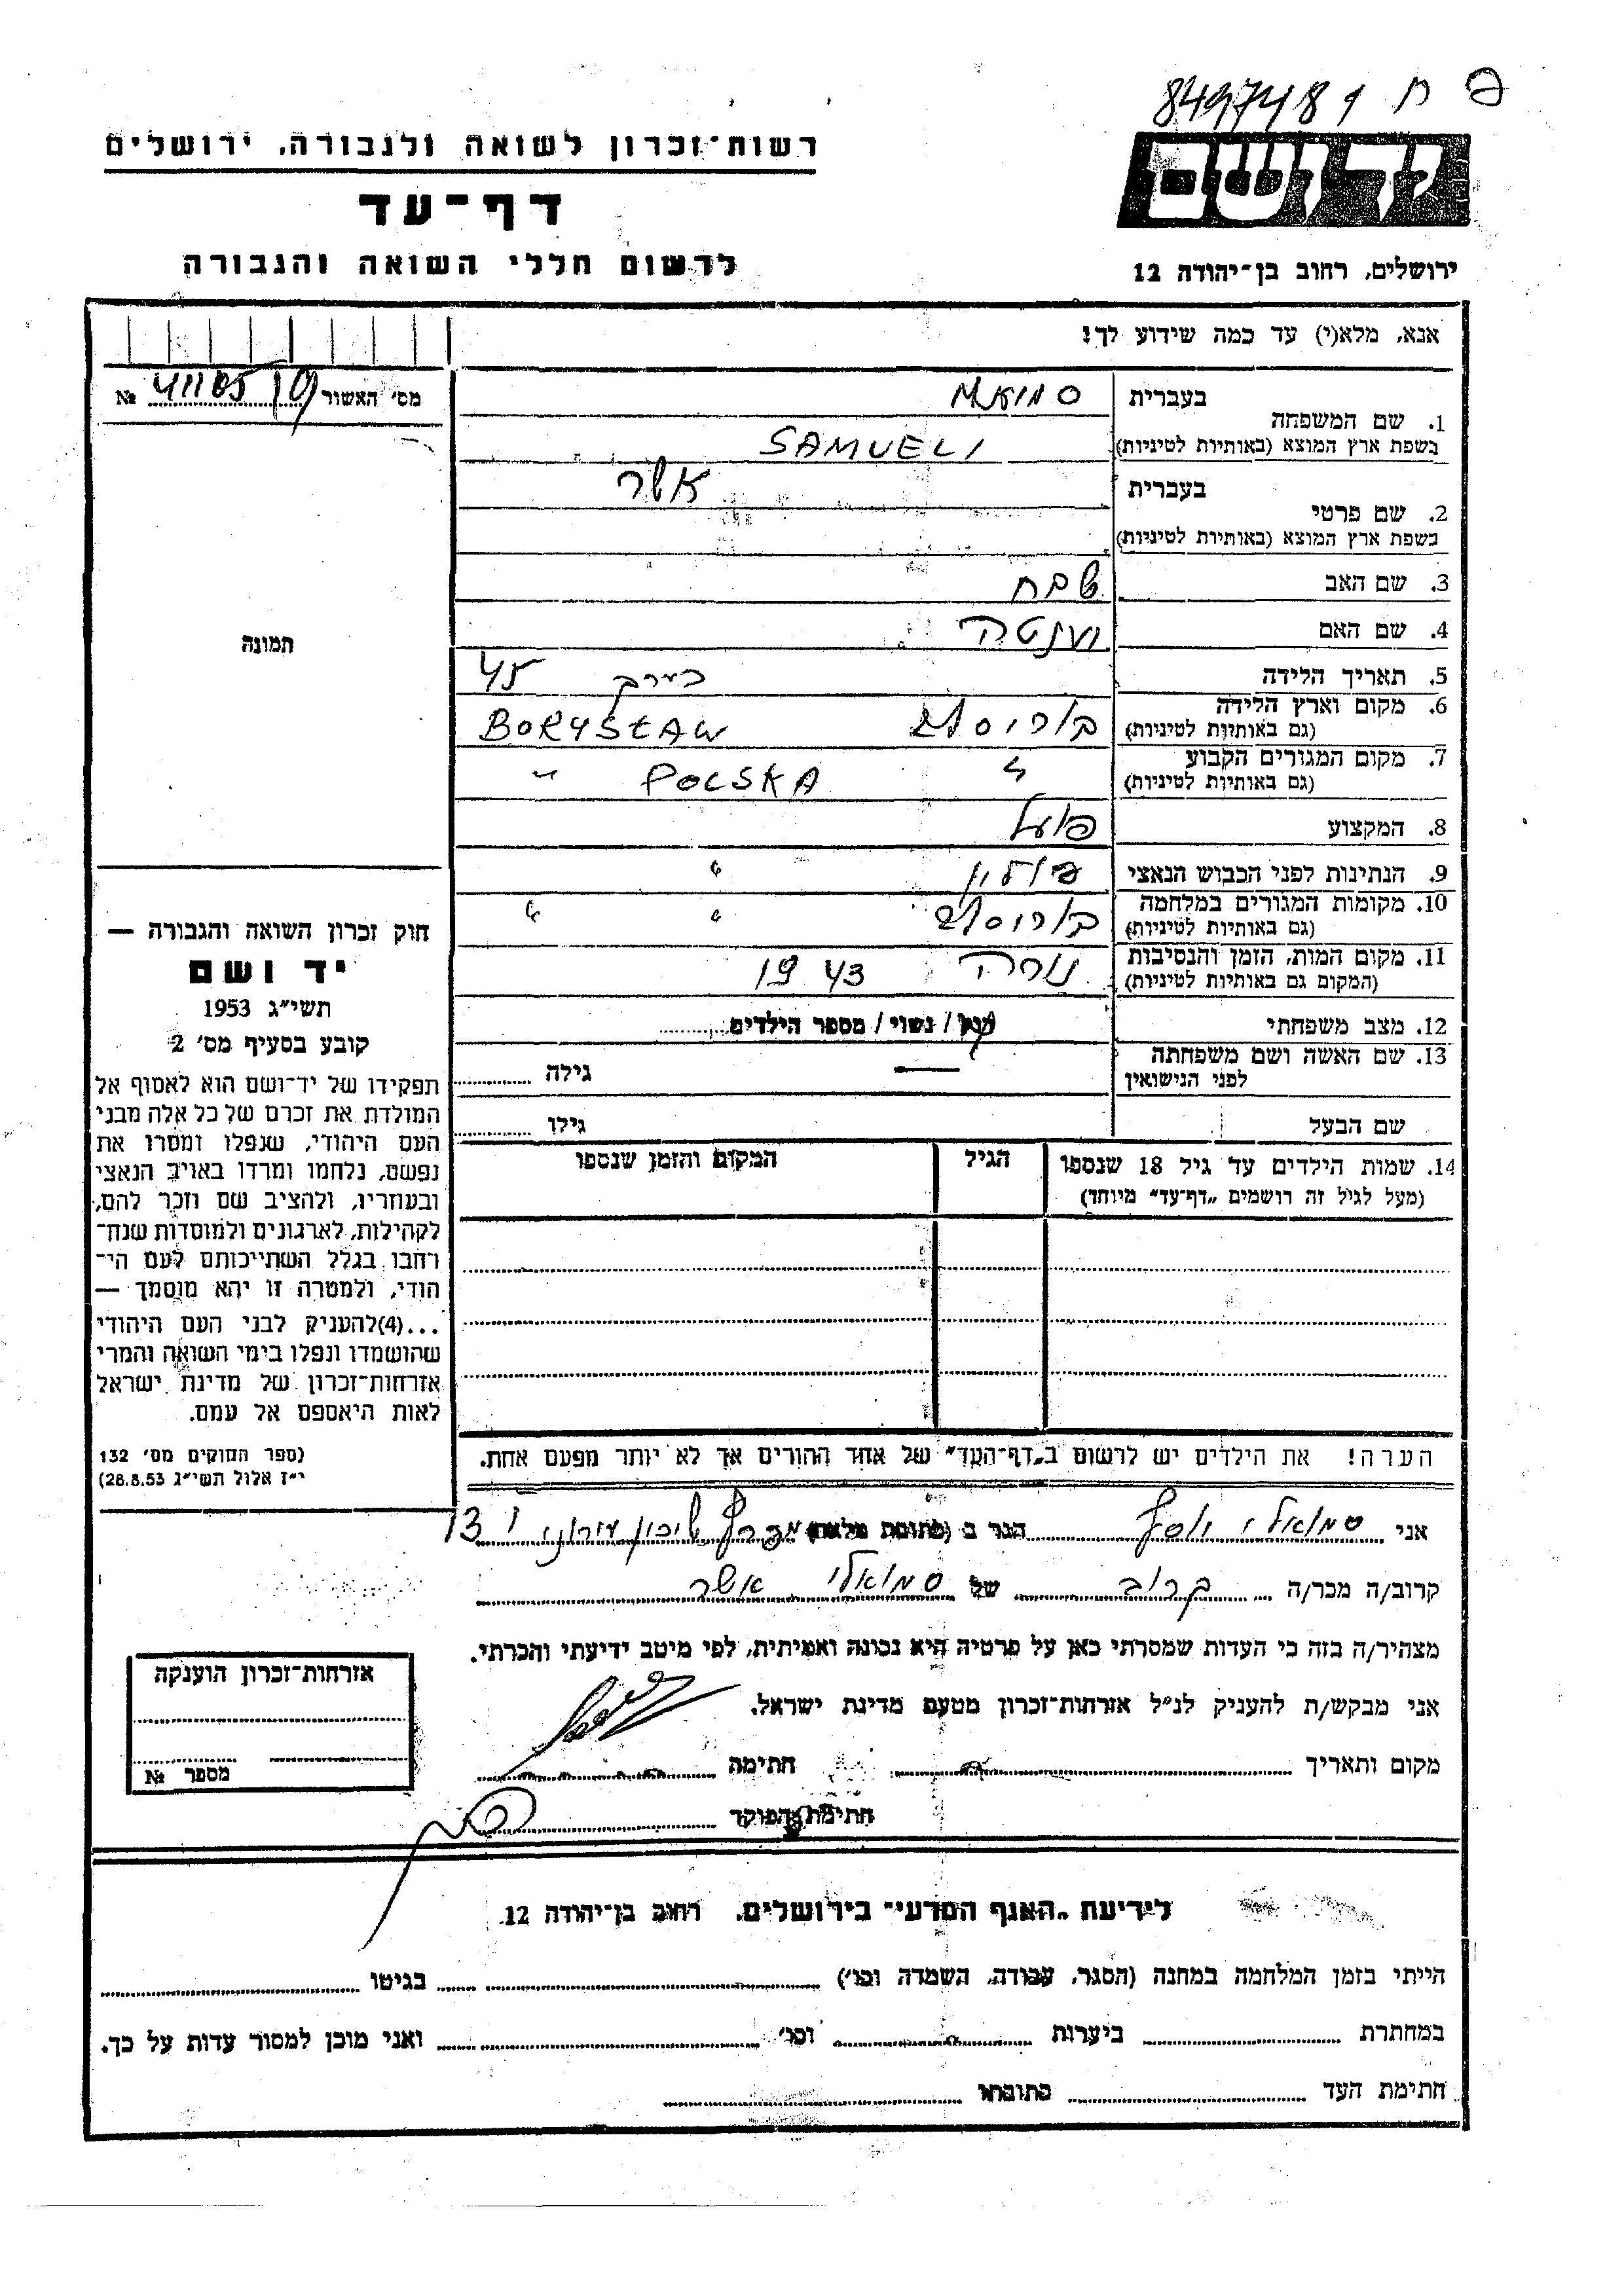 פ ח 8497481
יד ושם
רשות־זכרון לשואה ולגבורה, ירושלים
דף־עד
לרשום חללי השואה והגבורה
ירושלים, רחוב בן־יהודה 12
אנא, מלא(י) עד כמה שידוע לך!
מס' האשור 41105 №
1. שם המשפחה
בעברית
בשפת ארץ המוצא (באותיות לטיניות) SAMUELI
2. שם פרטי
בעברית אשר
בשפת ארץ המוצא (באותיות לטיניות)
3. שם האב שבח
4. שם האם יענטה
5. תאריך הלידה בערך 45
6. מקום וארץ הלידה (גם באותיות לטיניות) בוריסלב BORYSŁAW
7. מקום המגורים הקבוע (גם באותיות לטיניות) " POLSKA "
8. המקצוע פועל
9. הנתינות לפני הכבוש הנאצי פולין "
10. מקומות המגורים במלחמה (גם באותיות לטיניות) בוריסלב " "
11. מקום המות, הזמן והנסיבות (המקום גם באותיות לטיניות) נורה 1943
12. מצב משפחתי רווק / נשוי / מספר הילדים
13. שם האשה ושם משפחתה לפני הנישואין — גילה
שם הבעל גילו
14. שמות הילדים עד גיל 18 שנספו
(מעל לגיל זה רושמים „דף־עד” מיוחד)
הגיל
המקום והזמן שנספו
הערה! את הילדים יש לרשום ב„דף־העד” של אחד ההורים אך לא יותר מפעם אחת.
תמונה
חוק זכרון השואה והגבורה —
יד ושם
תשי"ג 1953
קובע בסעיף מס' 2
תפקידו של יד־ושם הוא לאסוף אל
המולדת את זכרם של כל אלה מבני
העם היהודי, שנפלו ומסרו את
נפשם, נלחמו ומרדו באויב הנאצי
ובעוזריו, ולהציב שם וזכר להם,
לקהילות, לארגונים ולמוסדות שנח־
רבו בגלל השתייכותם לעם הי־
הודי, ולמטרה זו יהא מוסמך —
...(4)להעניק לבני העם היהודי
שהושמדו ונפלו בימי השואה והמרי
אזרחות־זכרון של מדינת ישראל
לאות היאספם אל עמם.
(ספר החוקים מס' 132
י"ז אלול תשי"ג 28.8.53)
אני סמואלי יוסף הגר ב (כתובת מלאה) שיכון עירוני 13
קרוב/ה מכר/ה קרוב של סמואלי אשר
מצהיר/ה בזה כי העדות שמסרתי כאן על פרטיה היא נכונה ואמיתית, לפי מיטב ידיעתי והכרתי.
אני מבקש/ת להעניק לנ"ל אזרחות־זכרון מטעם מדינת ישראל.
מקום ותאריך חתימה
חתימת הפוקד
אזרחות־זכרון הוענקה
מספר №
לידיעת „האגף המדעי” בירושלים, רחוב בן־יהודה 12
הייתי בזמן המלחמה במחנה (הסגר, עבודה, השמדה וכו') בגיטו
במחתרת ביערות וכו' ואני מוכן למסור עדות על כך.
חתימת העד כתובתו